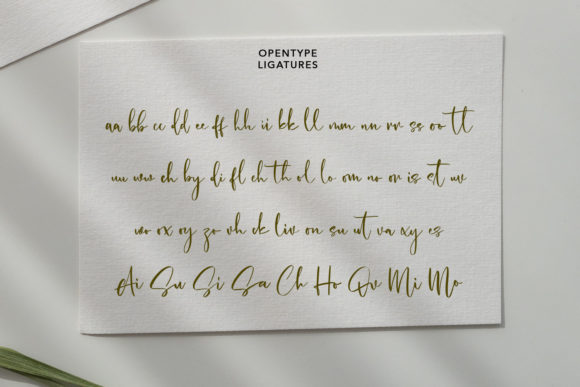 OPENTYPE
LIGATURES
aa bb cc dd ee ff hh ii kk ll mm nn rr ss oo tt
uu ww ch by di fl eh th ol lo om no or is et uv
wo ox oy zo vh ck liv on su ut va xy es
Ai Su Si Sa Ch Ho Qu Mi Mo